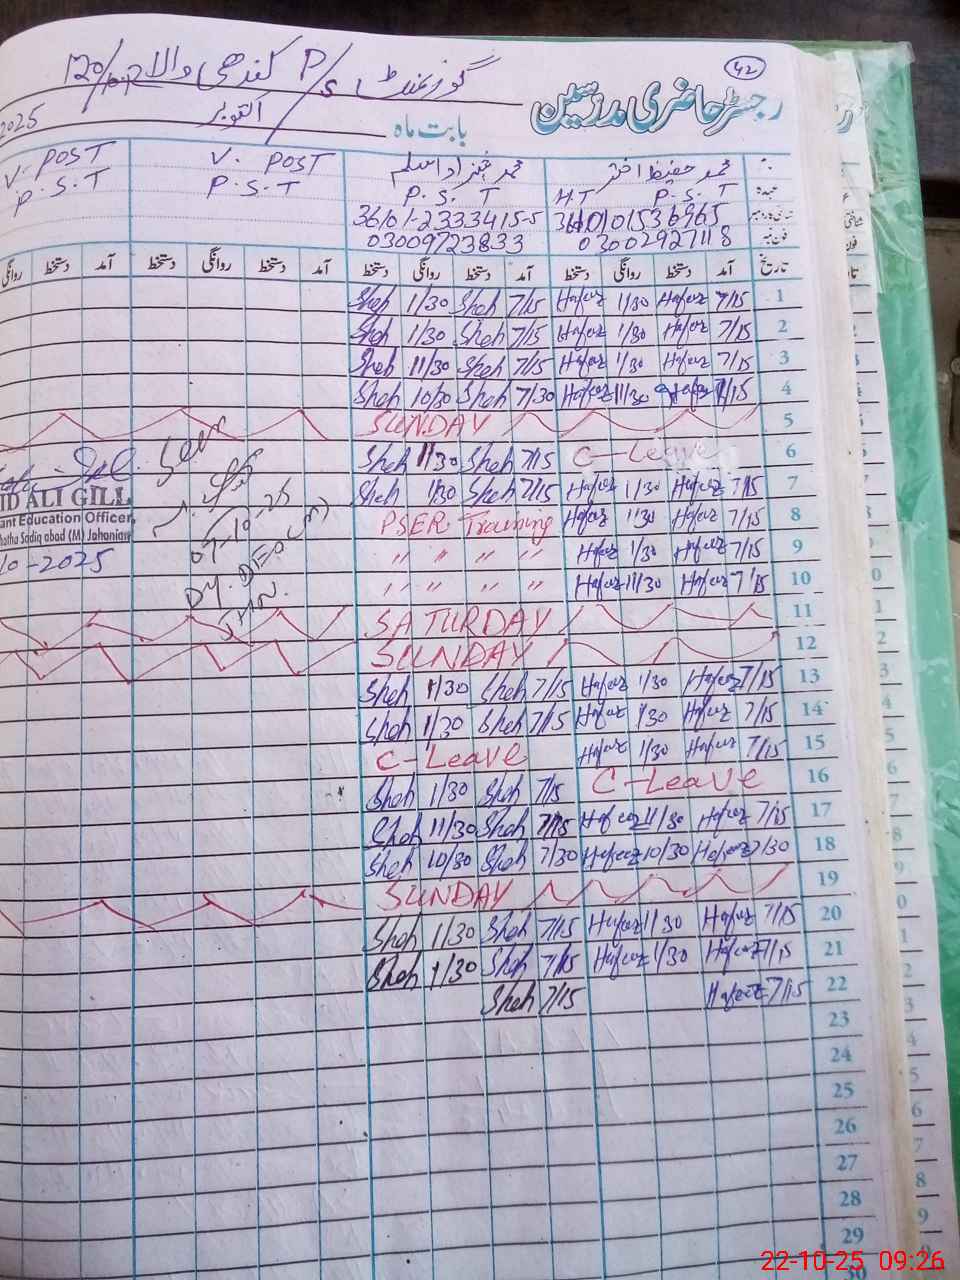 42
گورنمنٹ P/S کندھی والا
رجسٹر حاضری مدرسین
بابت ماہ اکتوبر 2025
محمد حفیظ اختر محمد شہزاد اسلم V. POST V. POST
عہدہ P.S.T H.T P.S.T P.S.T P.S.T
36101-2333415-5
03002927118 03009723833
تاریخ آمد دستخط روانگی دستخط آمد دستخط روانگی دستخط آمد دستخط روانگی دستخط آمد دستخط روانگی
1 7/15 Hafeez 1/30 Hafeez 7/15 Sheh 1/30 Sheh
2 7/15 Hafeez 1/30 Hafeez 7/15 Sheh 1/30 Sheh
3 7/15 Hafeez 1/30 Hafeez 7/15 Sheh 11/30 Sheh
4 7/15 Hafeez 11/30 Hafeez 7/30 Sheh 10/30 Sheh
5 SUNDAY
6 C-Leave 7/15 Sheh 11/30 Sheh
7 7/15 Hafeez 1/30 Hafeez 7/15 Sheh 1/30 Sheh
8 7/15 Hafeez 1/30 Hafeez PSER Training
9 7/15 Hafeez 1/30 Hafeez " " " "
10 7/15 Hafeez 11/30 Hafeez " " " "
11 SATURDAY
12 SUNDAY
13 7/15 Hafeez 1/30 Hafeez 7/15 Sheh 1/30 Sheh
14 7/15 Hafeez 1/30 Hafeez 7/15 Sheh 1/30 Sheh
15 7/15 Hafeez 1/30 Hafeez C-Leave
16 C-Leave 7/15 Sheh 1/30 Sheh
17 7/15 Hafeez 11/30 Hafeez 7/15 Sheh 11/30 Sheh
18 7/30 Hafeez 10/30 Hafeez 7/30 Sheh 10/30 Sheh
19 SUNDAY
20 7/15 Hafeez 1/30 Hafeez 7/15 Sheh 1/30 Sheh
21 7/15 Hafeez 1/30 Hafeez 7/15 Sheh 1/30 Sheh
22 7/15 Hafeez 7/15 Sheh
23
24
25
26
27
28
29
30
Seen
07-10-25
DY. DEO (M)
JHN.
ID ALI GILL
ant Education Officer,
hatha Sadiq abad (M) Jahanian
10-2025
22-10-25 09:26